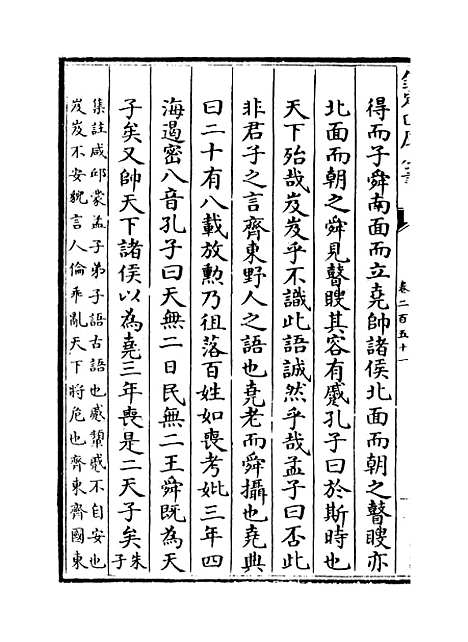 得而子舜南面而立堯帥諸侯北面而朝之瞽瞍亦
北面而朝之舜見瞽瞍其容有蹙孔子曰於斯時也
天下殆哉岌岌乎不識此語誠然乎哉孟子曰否此
非君子之言齊東野人之語也堯老而舜攝也堯典
曰二十有八載放勲乃徂落百姓如喪考妣三年四
海遏密八音孔子曰天無二日民無二王舜既為天
子矣又帥天下諸侯以為堯三年喪是二天子矣朱子
集註咸邱蒙孟子弟子語古語也蹙顰蹙不自安也
岌岌不安貌言人倫乖亂天下將危也齊東齊國東
欽定四庫全書
卷二百五十一